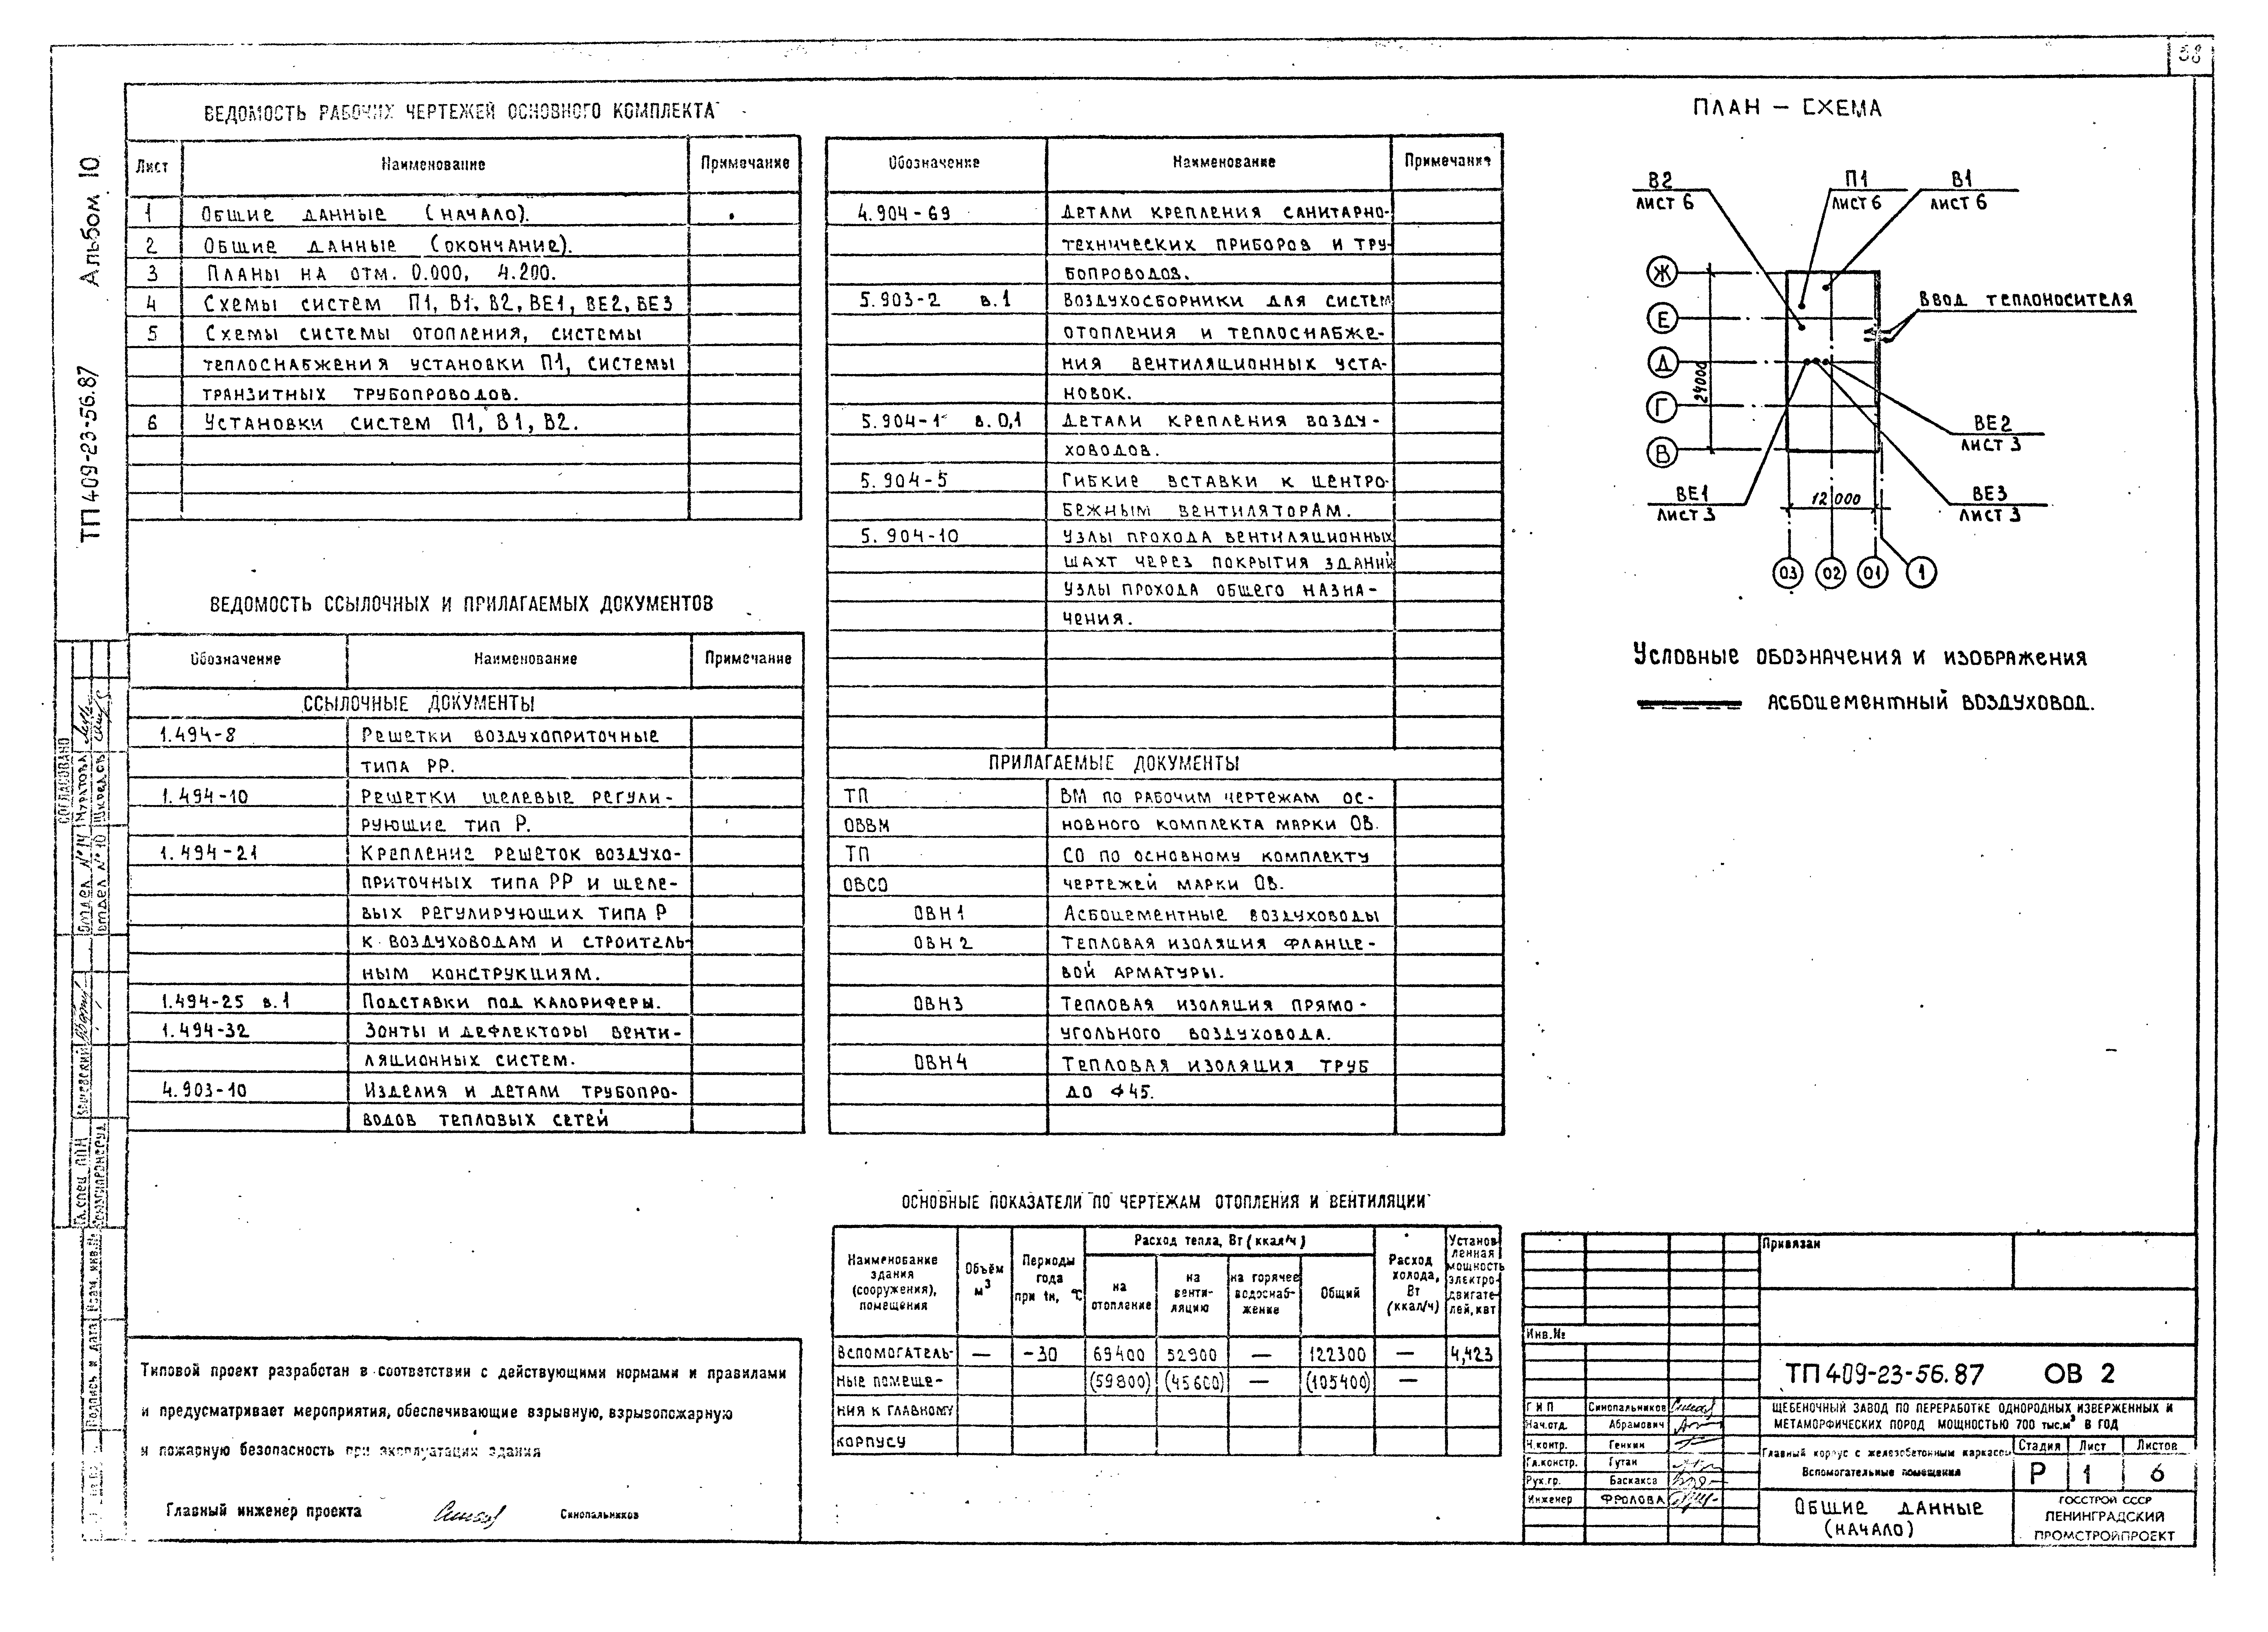 58
Альбом 10
ТП 409-23-56.87
ВЕДОМОСТЬ РАБОЧИХ ЧЕРТЕЖЕЙ ОСНОВНОГО КОМПЛЕКТА
Лист Наименование Примечание
1 Общие данные (начало).
2 Общие данные (окончание).
3 Планы на отм. 0.000, 4.200.
4 Схемы систем П1, В1, В2, ВЕ1, ВЕ2, ВЕ3
5 Схемы системы отопления, системы
теплоснабжения установки П1, системы
транзитных трубопроводов.
6 Установки систем П1, В1, В2.
ВЕДОМОСТЬ ССЫЛОЧНЫХ И ПРИЛАГАЕМЫХ ДОКУМЕНТОВ
Обозначение Наименование Примечание
ССЫЛОЧНЫЕ ДОКУМЕНТЫ
1.494-8 Решетки воздухоприточные
типа РР.
1.494-10 Решетки щелевые регули-
рующие тип Р.
1.494-21 Крепление решеток воздухо-
приточных типа РР и щеле-
вых регулирующих типа Р
к воздуховодам и строитель-
ным конструкциям.
1.494-25 в.1 Подставки под калориферы.
1.494-32 Зонты и дефлекторы венти-
ляционных систем.
4.903-10 Изделия и детали трубопро-
водов тепловых сетей
Обозначение Наименование Примечание
4.904-69 Детали крепления санитарно-
технических приборов и тру-
бопроводов.
5.903-2 в.1 Воздухосборники для систем
отопления и теплоснабже-
ния вентиляционных уста-
новок.
5.904-1 в.0,1 Детали крепления возду-
ховодов.
5.904-5 Гибкие вставки к центро-
бежным вентиляторам.
5.904-10 Узлы прохода вентиляционных
шахт через покрытия зданий
Узлы прохода общего назна-
чения.
ПРИЛАГАЕМЫЕ ДОКУМЕНТЫ
ТП ВМ по рабочим чертежам ос-
ОВВМ новного комплекта марки ОВ.
ТП СО по основному комплекту
ОВСО чертежей марки ОВ.
ОВН1 Асбоцементные воздуховоды
ОВН2 Тепловая изоляция фланце-
вой арматуры.
ОВН3 Тепловая изоляция прямо-
угольного воздуховода.
ОВН4 Тепловая изоляция труб
до ф45.
ПЛАН – СХЕМА
В2 П1 В1
лист 6 лист 6 лист 6
Ж
Е
Д
Г
В
24000
Ввод теплоносителя
ВЕ2
лист 3
ВЕ1 12 000 ВЕ3
лист 3 лист 3
03 02 01 1
Условные обозначения и изображения
асбоцементный воздуховод.
Типовой проект разработан в соответствии с действующими нормами и правилами
и предусматривает мероприятия, обеспечивающие взрывную, взрывопожарную
и пожарную безопасность при эксплуатации здания
Главный инженер проекта Синопальников
ОСНОВНЫЕ ПОКАЗАТЕЛИ ПО ЧЕРТЕЖАМ ОТОПЛЕНИЯ И ВЕНТИЛЯЦИИ
Наименование здания (сооружения), помещения
Объём м3
Периоды года при tн, °С
Расход тепла, Вт (ккал/ч)
на отопление
на венти-ляцию
на горячее водоснаб-жение
Общий
Расход холода, Вт (ккал/ч)
Установ-ленная мощность электро-двигате-лей, квт
Вспомогатель- — -30 69400 52900 — 122300 — 4,423
ные помеще- (59800) (45600) — (105400) —
ния к главному
корпусу
Привязан
Инв.№
ТП 409-23-56.87 ОВ 2
ЩЕБЕНОЧНЫЙ ЗАВОД ПО ПЕРЕРАБОТКЕ ОДНОРОДНЫХ ИЗВЕРЖЕННЫХ И
МЕТАМОРФИЧЕСКИХ ПОРОД МОЩНОСТЬЮ 700 тыс.м3 В ГОД
ГИП Синопальников
Нач.отд. Абрамович
Н.контр. Генкин
Гл.констр. Гутан
Рук.гр.
Инженер Фролова
Главный корпус с железобетонным каркасом
Вспомогательные помещения
Стадия Лист Листов
Р 1 6
Общие данные
(начало)
ГОССТРОЙ СССР
ЛЕНИНГРАДСКИЙ
ПРОМСТРОЙПРОЕКТ
СОГЛАСОВАНО
Отдел №14 Муратова
Отдел №10
Гл. спец.
Взам. инв.№
Подпись и дата